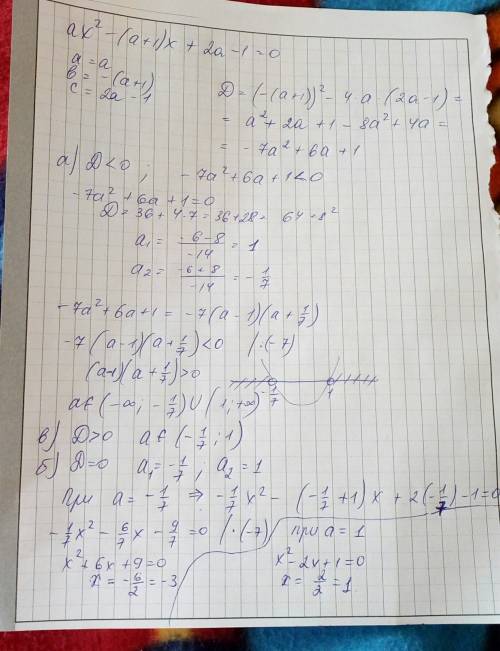 ax² - (a+1)x + 2a - 1 = 0
a = a
в = -(a+1)
c = 2a - 1
D = (-(a+1))² - 4·a·(2a-1) =
= a² + 2a + 1 - 8a² + 4a =
= -7a² + 6a + 1
а) D < 0 ; -7a² + 6a + 1 < 0
-7a² + 6a + 1 = 0
D = 36 + 4·7 = 36 + 28 = 64 = 8²
a₁ = (-6-8)/(-14) = 1
a₂ = (-6+8)/(-14) = -1/7
-7a² + 6a + 1 = -7(a-1)(a+1/7)
-7(a-1)(a+1/7) < 0 |:(-7)
(a-1)(a+1/7) > 0
-1/7 1
a ∈ (-∞; -1/7) ∪ (1; +∞)
в) D > 0 a ∈ (-1/7; 1)
б) D = 0 a₁ = -1/7, a₂ = 1
при a = -1/7 ⇒ -1/7x² - (-1/7+1)x + 2(-1/7) - 1 = 0
-1/7x² - 6/7x - 9/7 = 0 |·(-7)
x² + 6x + 9 = 0
x = -6/2 = -3
при a = 1
x² - 2x + 1 = 0
x = 2/2 = 1